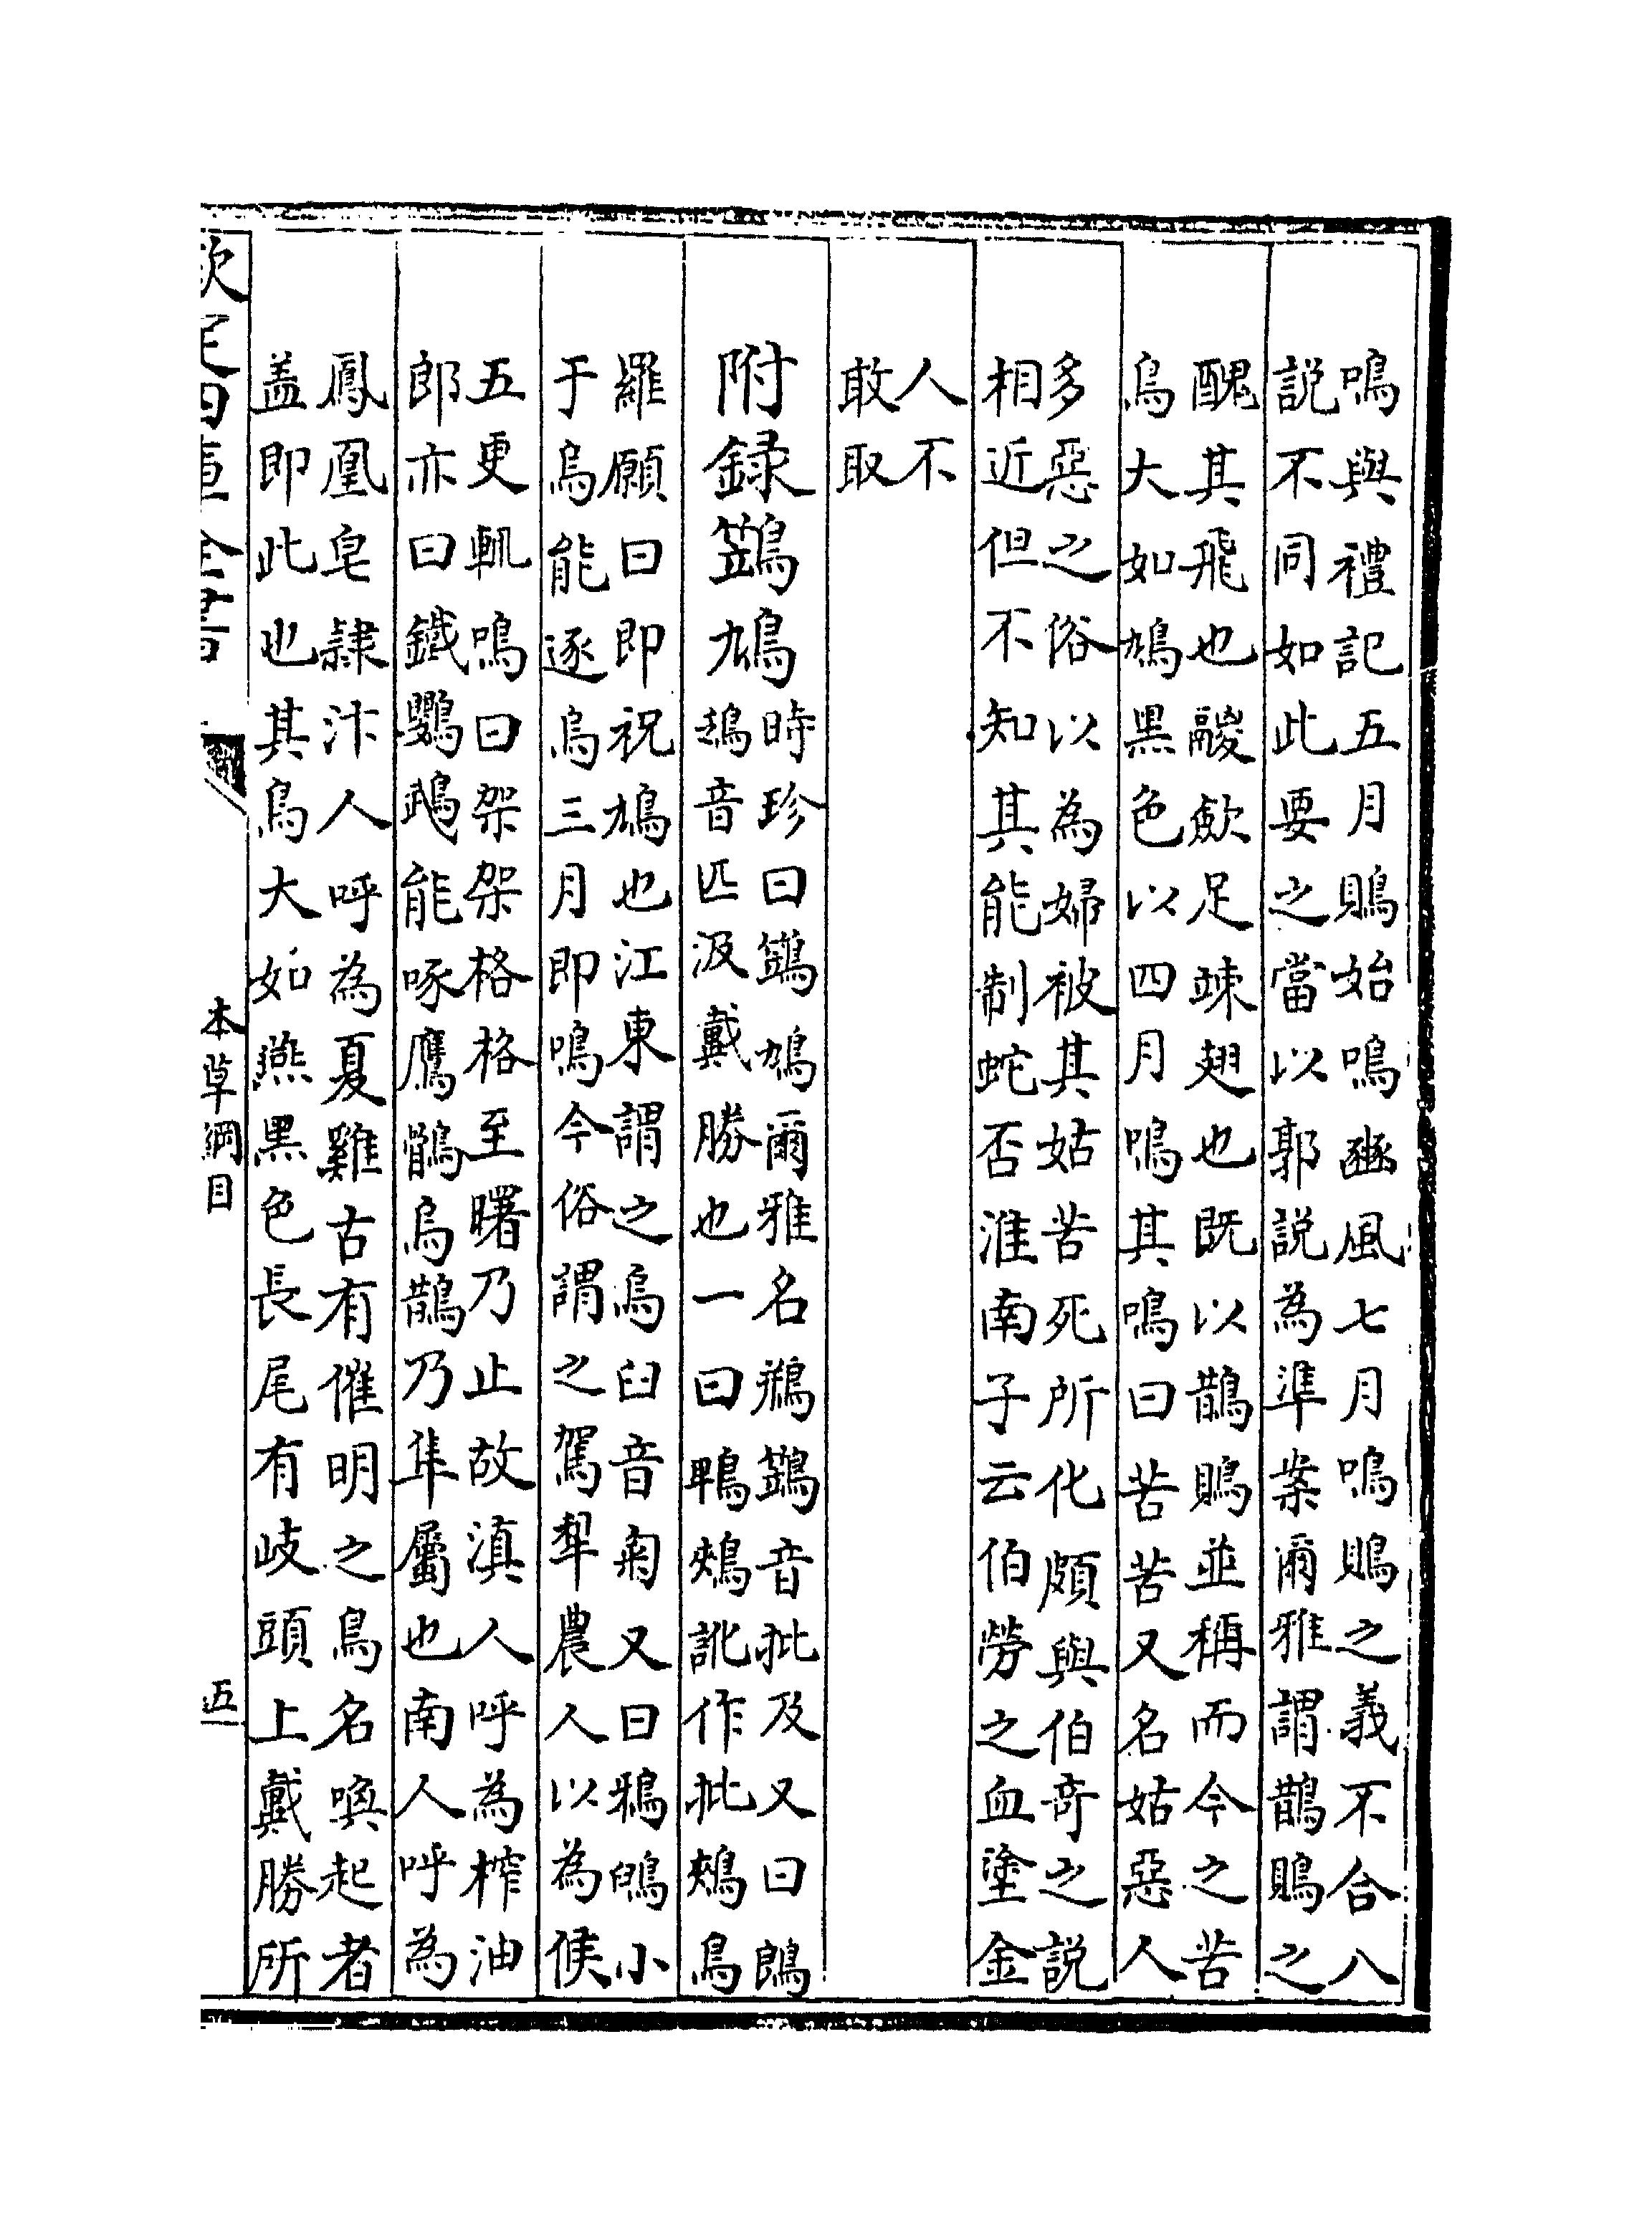 鳴與禮記五月鵙始鳴豳風七月鳴鵙之義不合八
說不同如此要之當以郭說為準案爾雅謂鵲鵙之
醜其飛也翪歛足竦翅也既以鵲鵙並稱而今之苦
鳥大如鳩黑色以四月鳴其鳴曰苦苦又名姑惡人
多惡之俗以為婦被其姑苦死所化頗與伯竒之說
相近但不知其能制蛇否淮南子云伯勞之血塗金
人不
敢取
附録鷑鳩
時珍曰鷑鳩爾雅名鵧鷑音批及又曰
音匹汲戴勝也一曰鵯鵊訛作批鵊鳥
羅願曰即祝鳩也江東謂之烏臼音匊又曰鴉小
于烏能逐烏三月即鳴今俗謂之駕犂農人以為候
五更輒鳴曰架架格格至曙乃止故滇人呼為榨油
郎亦曰鐵鸚鵡能啄鷹鶻烏鵲乃隼屬也南人呼為
鳳凰皂隸汴人呼為夏雞古有催明之鳥名喚起者
盖即此也其鳥大如燕黒色長尾有岐頭上戴勝所
欽定四庫全書
本草綱目
五